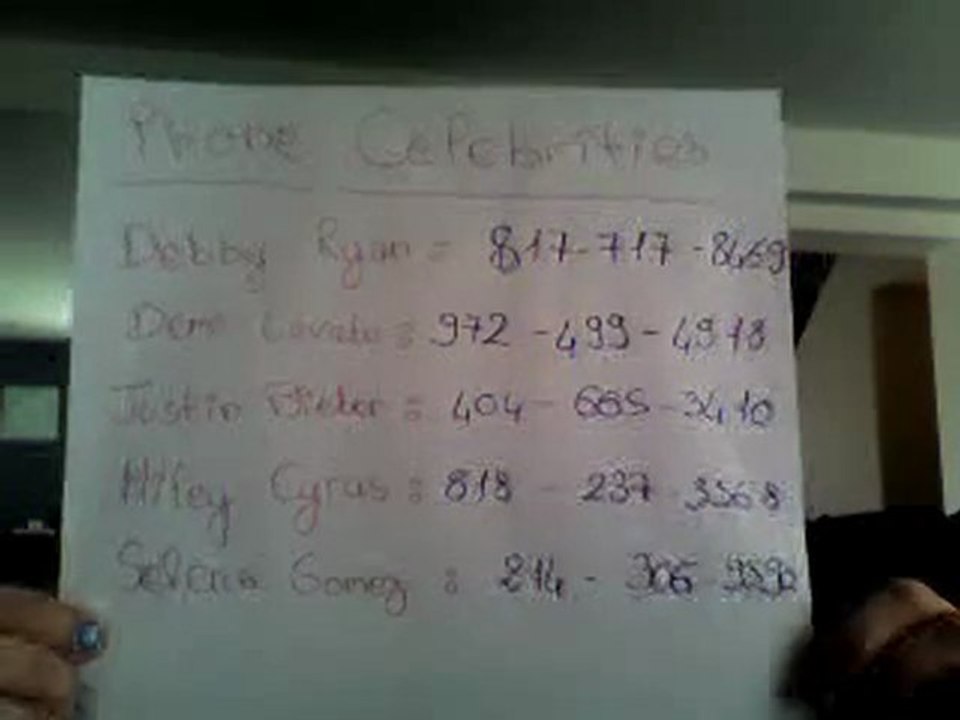 Phone Celebrities
Debby Ryan = 817-717-8469
Demi Lovato : 972-499-4918
Justin Bieber : 404-665-3410
Miley Cyrus : 818-237
Selena Gomez : 214-